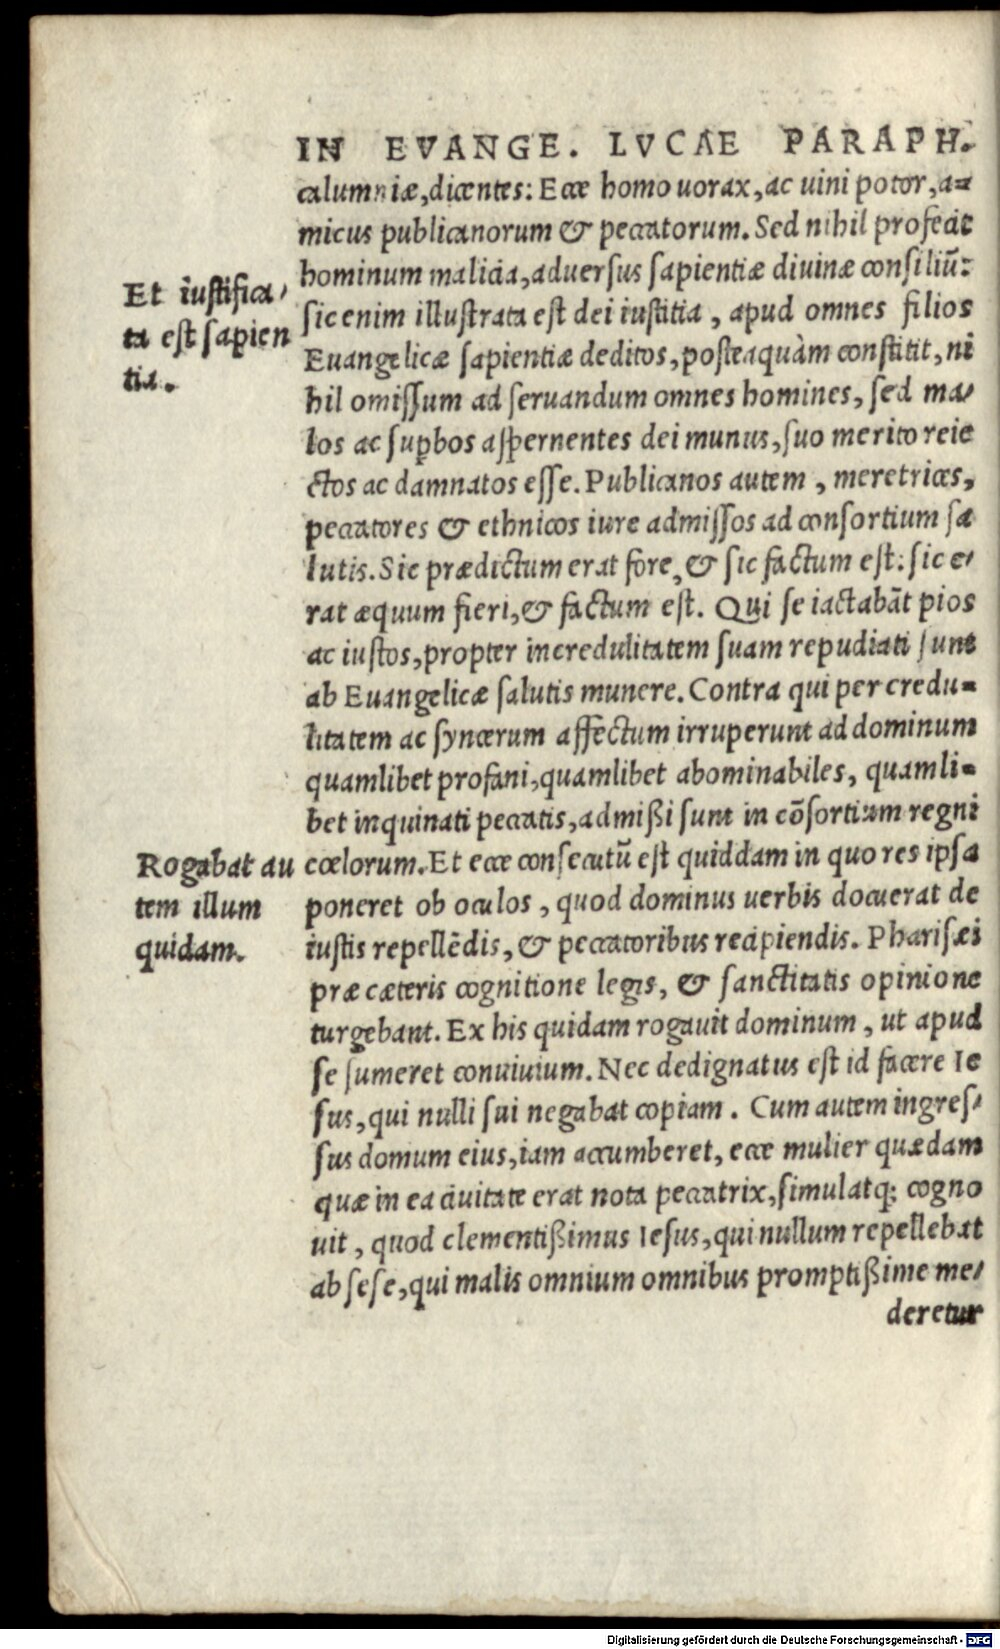 IN EVANGE. LVCAE PARAPH.
calumniæ,dicentes: Ecce homo uorax,ac uini potor,a=
micus publicanorum & peccatorum. Sed nihil profecit
hominum malicia,aduersus sapientiæ diuinæ consiliū:
Et iustifica/
ta est sapien
tia.
sic enim illustrata est dei iustitia , apud omnes filios
Euangelicæ sapientiæ deditos,posteaquàm constitit,ni
hil omissum ad seruandum omnes homines, sed ma/
los ac supbos aspernentes dei munus,suo merito reie
ctos ac damnatos esse. Publicanos autem , meretrices,
peccatores & ethnicos iure admissos ad consortium sa
lutis. Sic prædictum erat fore,& sic factum est: sic e/
rat æquum fieri,& factum est. Qui se iactabāt pios
ac iustos,propter incredulitatem suam repudiati sunt
ab Euangelicæ salutis munere. Contra qui per credu=
litatem ac syncerum affectum irruperunt ad dominum
quamlibet profani,quamlibet abominabiles, quamli=
bet inquinati peccatis,admißi sunt in cōsortium regni
Rogabat au
tem illum
quidam.
cœlorum. Et ecce consecutū est quiddam in quo res ipsa
poneret ob oculos , quod dominus uerbis docuerat de
iustis repellēdis, & peccatoribus recipiendis. Pharisæi
præ cæteris cognitione legis, & sanctitatis opinione
turgebant. Ex his quidam rogauit dominum , ut apud
se sumeret conuiuium. Nec dedignatus est id facere Ie
sus,qui nulli sui negabat copiam . Cum autem ingres/
sus domum eius,iam accumberet, ecce mulier quædam
quæ in ea ciuitate erat nota peccatrix,simulatq; cogno
uit , quod clementißimus Iesus,qui nullum repellebat
ab sese,qui malis omnium omnibus promptißime me/
deretur
Digitalisierung gefördert durch die Deutsche Forschungsgemeinschaft - DFG